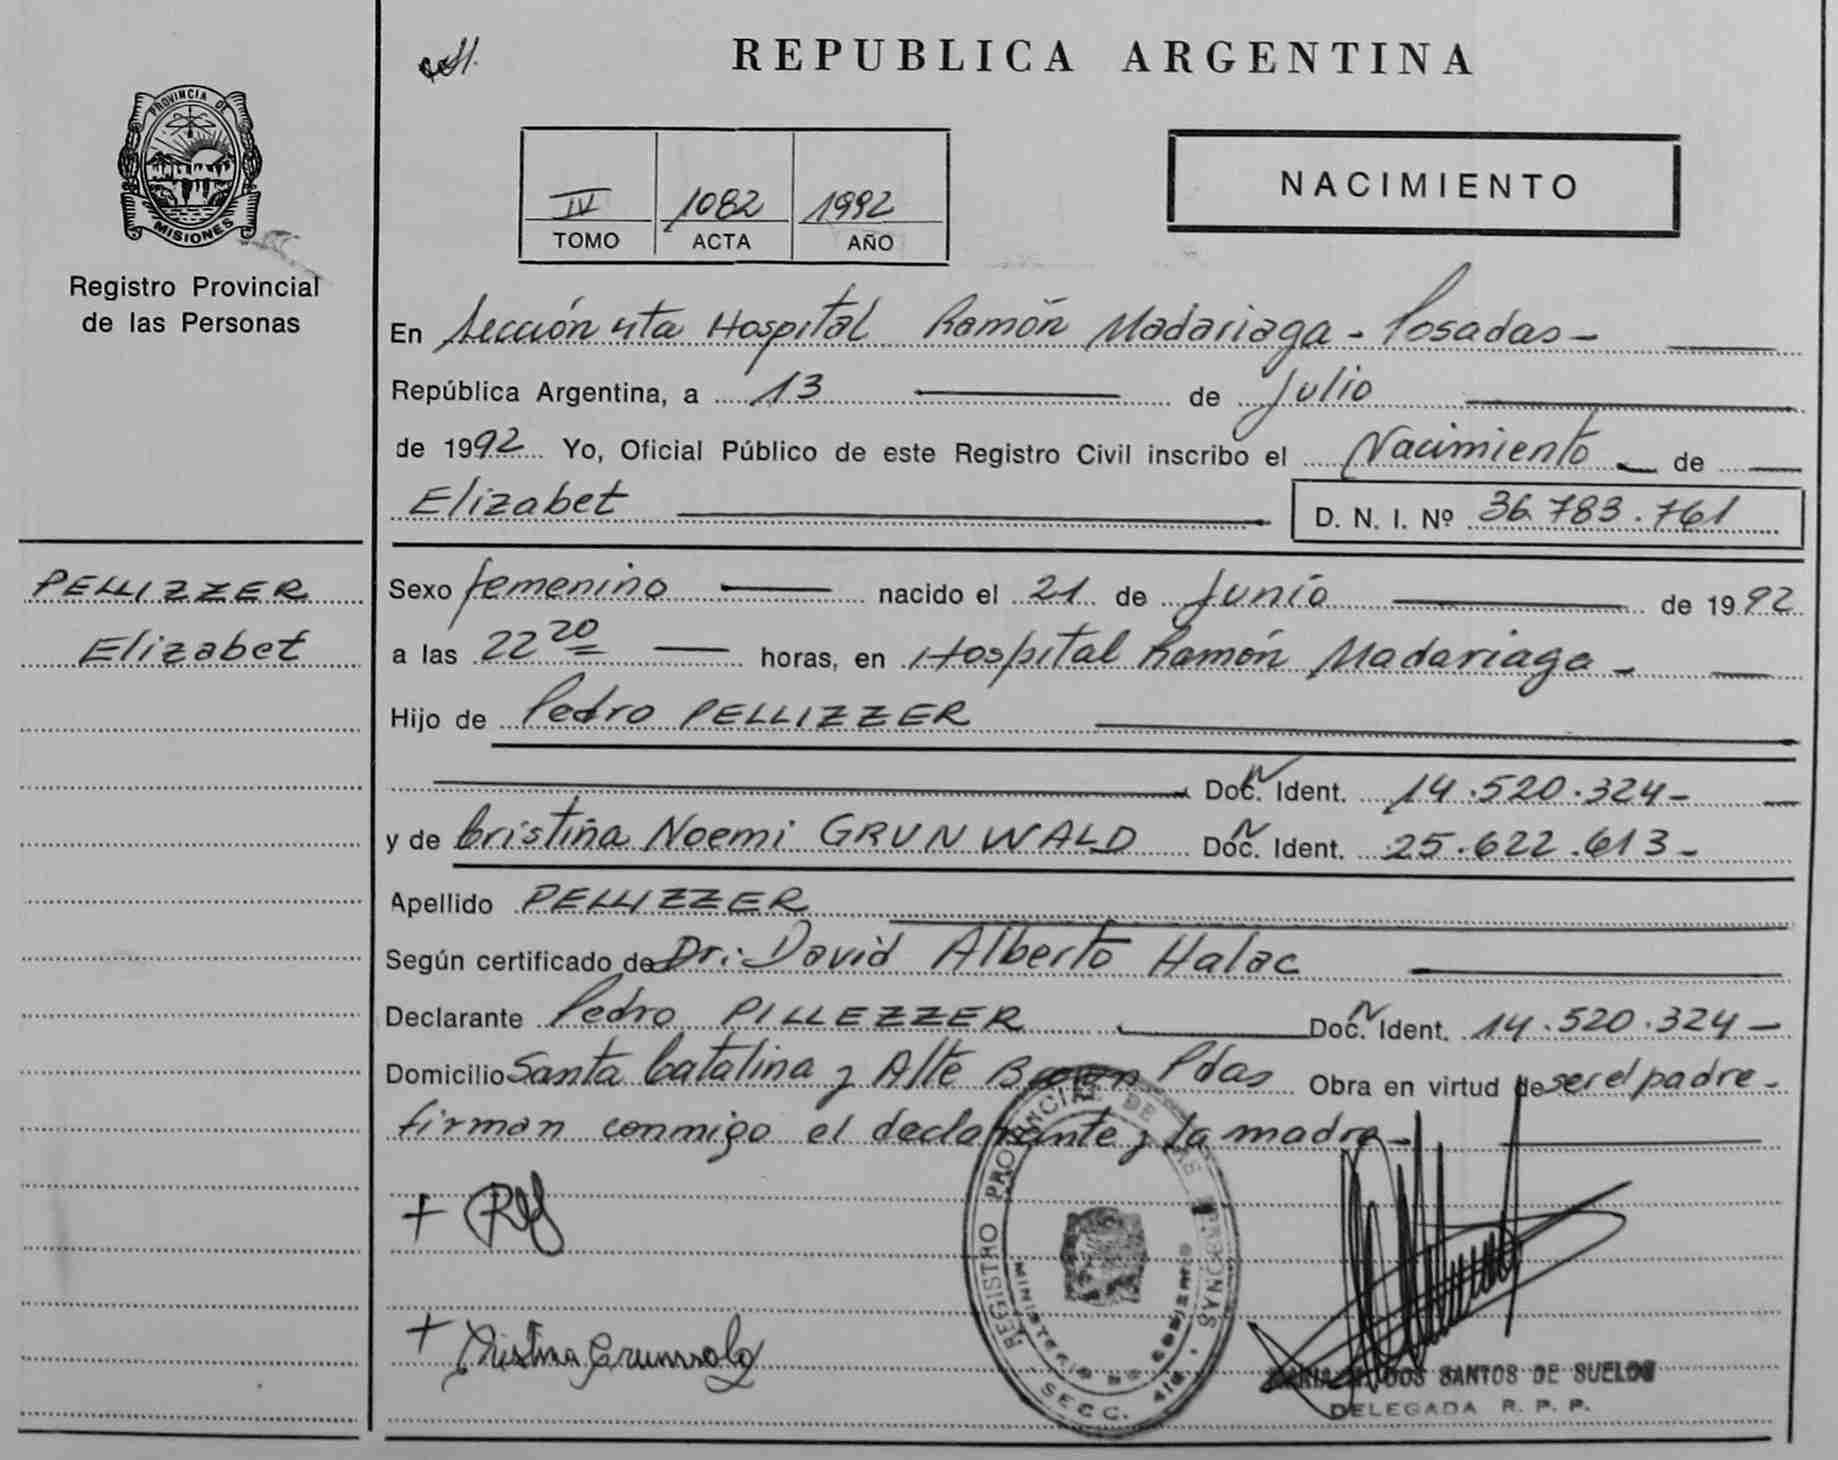 REPUBLICA ARGENTINA
PROVINCIA DE
MISIONES
Registro Provincial
de las Personas
IV 1082 1992
TOMO ACTA AÑO
NACIMIENTO
En Sección 4ta Hospital Ramón Madariaga - Posadas -
República Argentina, a 13 de Julio
de 1992 Yo, Oficial Público de este Registro Civil inscribo el Nacimiento de
Elizabet D. N. I. Nº 36.783.761
PELLIZZER
Elizabet
Sexo femenino nacido el 21 de Junio de 1992
a las 22 20 horas, en Hospital Ramón Madariaga -
Hijo de Pedro PELLIZZER
Doc. Ident. 14.520.324 -
y de Cristina Noemi GRUNWALD Doc. Ident. 25.622.613 -
Apellido PELLIZZER
Según certificado de Dr: David Alberto Halac
Declarante Pedro PILLEZZER Doc. Ident. 14.520.324 -
Domicilio Santa Catalina y Alte Brown Pdas Obra en virtud de ser el padre -
firman conmigo el declarante y la madre -
+
+ Cristina
REGISTRO PROVINCIAL DE LAS PERSONAS
MINISTERIO DE GOBIERNO
SECC. 4ta.
DOS SANTOS DE SUELDO
DELEGADA R. P. P.